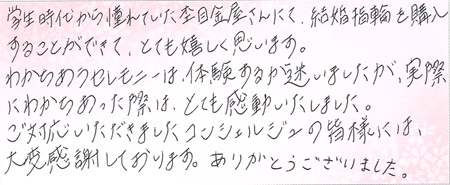 学生時代から憧れていた杢目金屋さんにて、結婚指輪を購入
することができて、とても嬉しく思います。
わかちあうセレモニーは、体験するか迷いましたが、実際
にわかちあった際は、とても感動いたしました。
ご対応いただきましたコンシェルジュの皆様には、
大変感謝しております。ありがとうございました。